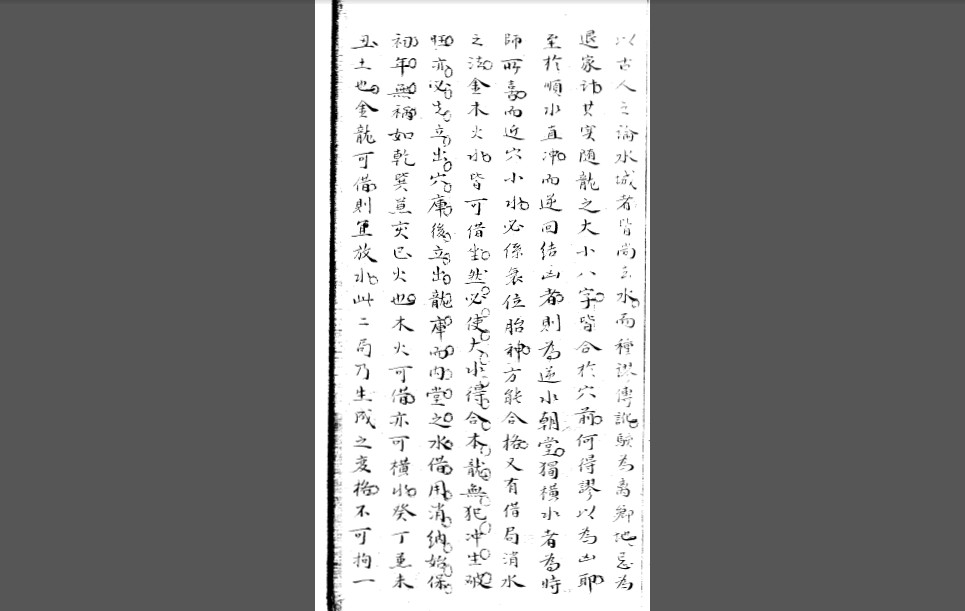 以古人之論水城者皆尚玄水而種謬傳訛疑為离鄉地忌為
退家计其实随龍之大小八字皆合於穴前何得謬以為凶耶
至於順水直冲而逆回结凶者則為逆水朝堂獨橫水者為時
師所喜而近穴小水必係衰位胎神方能合格又有借局消水
之法金木火水皆可借坐然必使大水得合本龍無犯冲生破
旺亦必先立出穴庫後立出龍庫而内堂之水借用消納始保
初年無禍如乾巽兼亥巳火也木火可借亦可橫水癸丁兼未
丑土也金龍可借則宜放水此二局乃生成之变格不可拘一